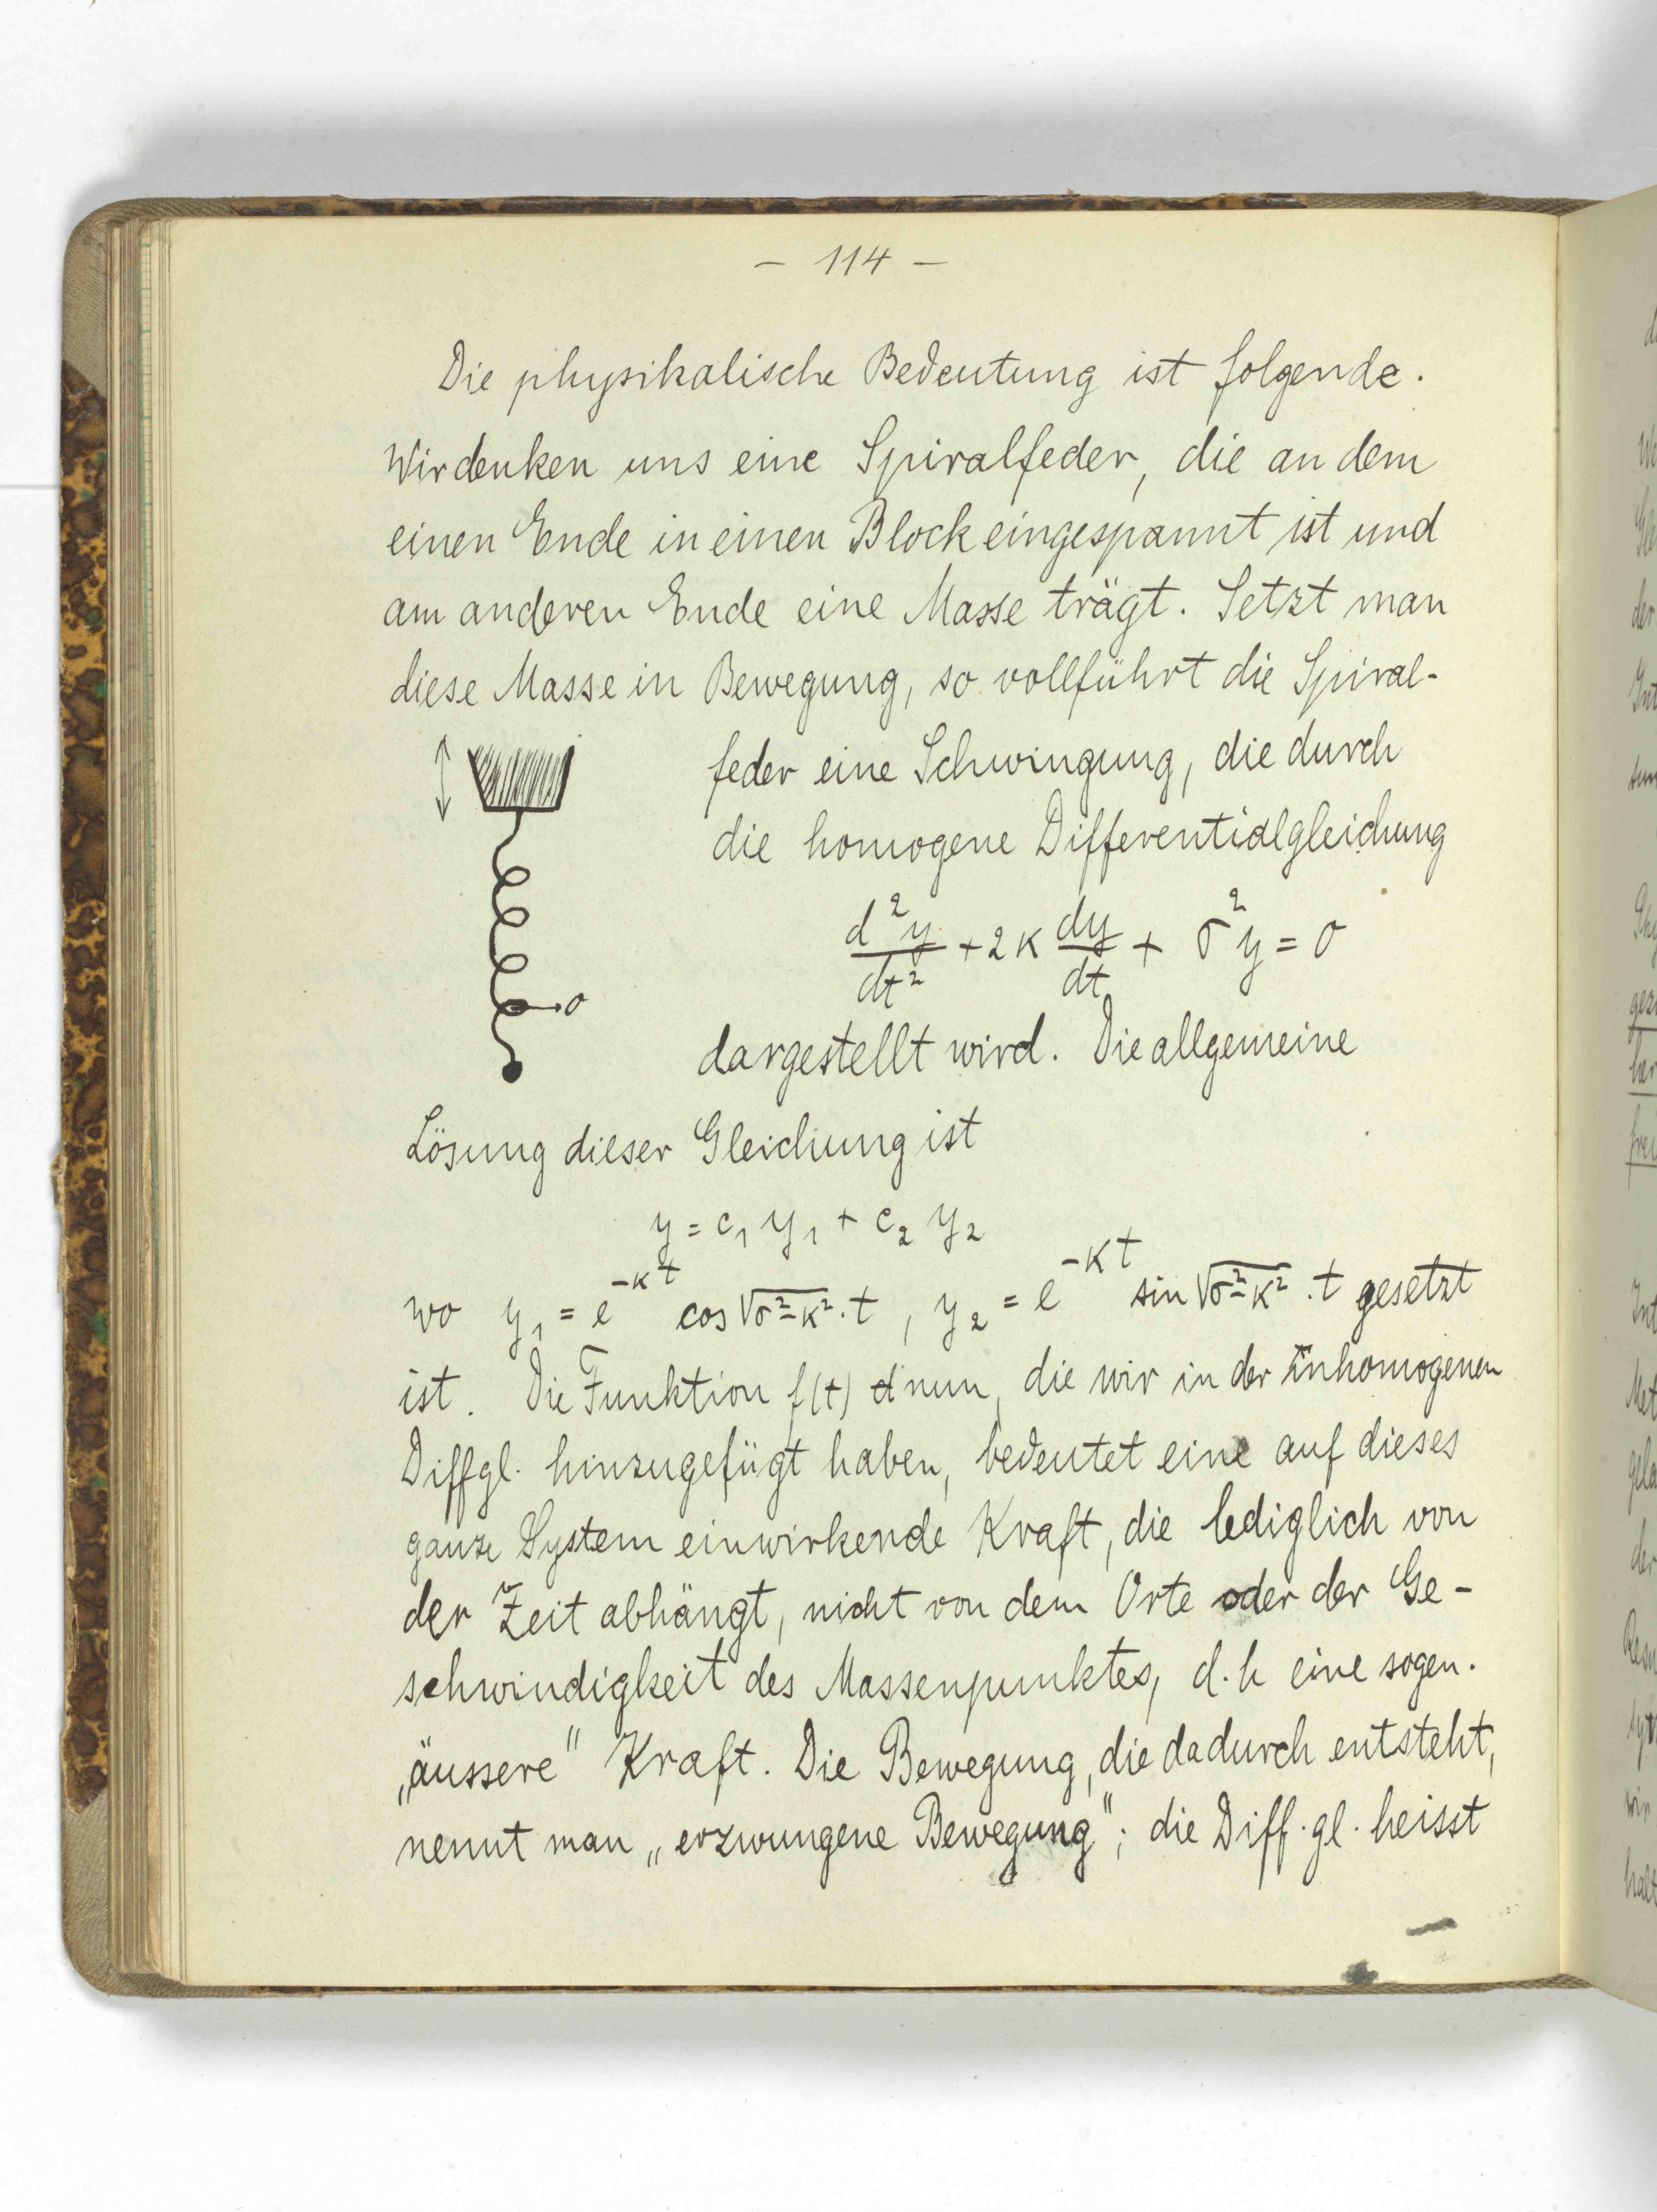 – 114 –
Die physikalische Bedeutung ist folgende.
Wir denken uns eine Spiralfeder, die an dem
einen Ende in einen Block eingespannt ist und
am anderen Ende eine Masse trägt. Setzt man
diese Masse in Bewegung, so vollführt die Spiral-
feder eine Schwingung, die durch
die homogene Differentialgleichung
d²y/dt² + 2κ dy/dt + σ²y = 0
0
dargestellt wird. Die allgemeine
Lösung dieser Gleichung ist
y = c₁ y₁ + c₂ y₂
wo y₁ = e^{-κt} cos √(σ²-κ²)·t, y₂ = e^{-κt} sin √(σ²-κ²)·t gesetzt
ist. Die Funktion f(t) nun, die wir in der inhomogenen
Diffgl. hinzugefügt haben, bedeutet eine auf dieses
ganze System einwirkende Kraft, die lediglich von
der Zeit abhängt, nicht von dem Orte oder der Ge-
schwindigkeit des Massenpunktes, d.h eine sogen.
„äussere" Kraft. Die Bewegung, die dadurch entsteht,
nennt man „erzwungene Bewegung"; die Diff.gl. heisst